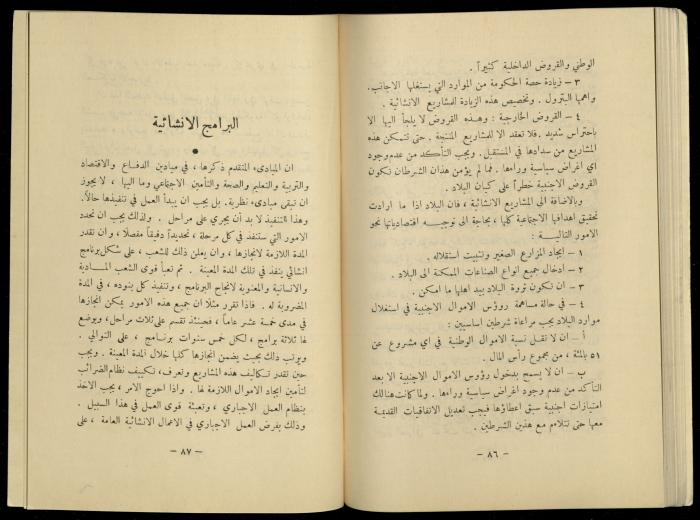 الوطني والقروض الداخلية كثيراً.
٣ – زيادة حصة الحكومة من الموارد التي يستغلها الاجانب.
واهمها البترول. وتخصيص هذه الزيادة للمشاريع الانشائية.
٤ – القروض الخارجية : وهذه القروض لا يلجأ اليها الا
باحتراس شديد. فلا تعقد الا للمشاريع المنتجة. حتى تتمكن هذه
المشاريع من سدادها في المستقبل. ويجب التأكد من عدم وجود
اي اغراض سياسية وراءها. فما لم يؤمن هذان الشرطان تكون
القروض الاجنبية خطراً على كيان البلاد.
وبالاضافة الى المشاريع الانشائية ، فان البلاد اذا ما ارادت
تحقيق اهدافها الاجتماعية كلها ، بحاجة الى توجيه اقتصادياتها نحو
الامور التالية :
١ – ايجاد المزارع الصغير وتثبيت استقلاله.
٢ – ادخال جميع انواع الصناعات الممكنة الى البلاد.
٣ – ان تكون ثروة البلاد بيد اهلها ما امكن.
٤ – في حالة مساهمة رؤوس الاموال الاجنبية في استغلال
موارد البلاد يجب مراعاة شرطين اساسيين :
أ – ان لا تقل نسبة الاموال الوطنية في اي مشروع عن
٥١ بالمئة ، من مجموع رأس المال.
ب – ان لا يسمح بدخول رؤوس الاموال الاجنبية الا بعد
التأكد من عدم وجود اغراض سياسية وراءها. ولما كانت هنالك
امتيازات اجنبية سبق اعطاؤها فيجب تعديل الاتفاقيات القديمة
معها حتى تتلاءم مع هذين الشرطين.
– ٨٦ –
البرامج الانشائية
ان المبادىء المتقدم ذكرها ، في ميادين الدفاع والاقتصاد
والتربية والتعليم والصحة والتأمين الاجتماعي وما اليها ، لا يجوز
ان تبقى مبادىء نظرية. بل يجب ان يبدأ العمل في تنفيذها حالاً.
وهذا التنفيذ لا بد أن يجري على مراحل. ولذلك يجب ان تحدد
الامور التي ستنفذ في كل مرحلة ، تحديداً دقيقاً مفصلا ، وان تقدر
المدة اللازمة لانجازها ، وان يعلن ذلك للشعب ، على شكل برنامج
انشائي ينفذ في تلك المدة المعينة. ثم تعبأ قوى الشعب المادية
والانسانية والمعنوية لانجاح البرنامج ، وتنفيذ كل بنوده ، في المدة
المضروبة له. فاذا تقرر مثلا ان جميع هذه الامور يمكن انجازها
في مدى خمسة عشر عاماً ، فحينئذ تقسم على ثلاث مراحل ، ويوضع
لها ثلاثة برامج ، لكل خمس سنوات برنامج ، على التوالي.
ويرتب ذلك بحيث يضمن انجازها كلها خلال المدة المعينة. ويجب
حين تقدر تكاليف هذه المشاريع وتعرف ، تكييف نظام الضرائب
لتأمين ايجاد الاموال اللازمة لها. واذا احوج الامر ، يجب الاخذ
بنظام العمل الاجباري ، وتعبئة قوى العمل في هذا السبيل.
وذلك بفرض العمل الاجباري في الاعمال الانشائية العامة ، على
– ٨٧ –